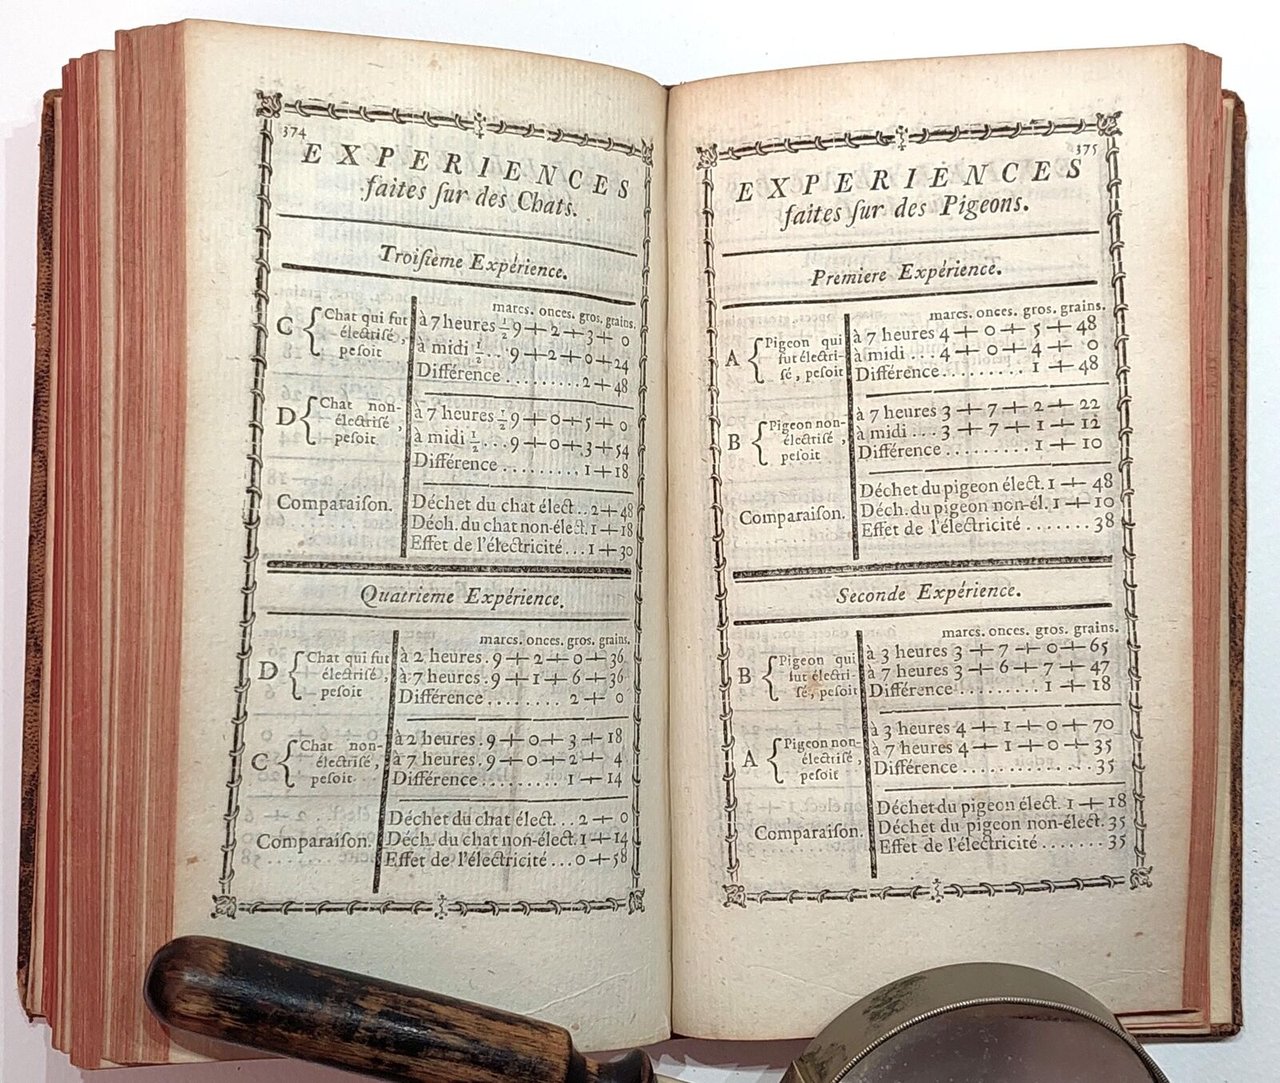 374
EXPERIENCES
faites ſur des Chats.
Troiſieme Expérience.
marcs. onces. gros. grains.
C { Chat qui fut électriſé, peſoit
à 7 heures ½ 9 + 2 + 3 + 0
à midi ½ .. 9 + 2 + 0 + 24
Différence .......... 2 + 48
D { Chat non-électriſé, peſoit
à 7 heures ½ 9 + 0 + 5 + 0
à midi ½ ... 9 + 0 + 3 + 54
Différence ......... 1 + 18
Comparaiſon.
Déchet du chat élect.. 2 + 48
Déch. du chat non-élect. 1 + 18
Effet de l'électricité ... 1 + 30
Quatrieme Expérience.
marcs. onces. gros. grains.
D { Chat qui fut électriſé, peſoit
à 2 heures . 9 + 2 + 0 + 36
à 7 heures . 9 + 1 + 6 + 36
Différence ........ 2 + 0
C { Chat non-électriſé, peſoit
à 2 heures . 9 + 0 + 3 + 18
à 7 heures . 9 + 0 + 2 + 4
Différence ......... 1 + 14
Comparaiſon.
Déchet du chat élect... 2 + 0
Déch. du chat non-élect. 1 + 14
Effet de l'électricité ... 0 + 58
375
EXPERIENCES
faites ſur des Pigeons.
Premiere Expérience.
marcs. onces. gros. grains.
A { Pigeon qui fut électriſé, peſoit
à 7 heures 4 + 0 + 5 + 48
à midi ... 4 + 0 + 4 + 0
Différence .......... 1 + 48
B { Pigeon non-électriſé, peſoit
à 7 heures 3 + 7 + 2 + 22
à midi .... 3 + 7 + 1 + 12
Différence .......... 1 + 10
Comparaiſon.
Déchet du pigeon élect. 1 + 48
Déch. du pigeon non-él. 1 + 10
Effet de l'électricité ....... 38
Seconde Expérience.
marcs. onces. gros. grains.
B { Pigeon qui fut électriſé, peſoit
à 3 heures 3 + 7 + 0 + 65
à 7 heures 3 + 6 + 7 + 47
Différence ......... 1 + 18
A { Pigeon non-électriſé, peſoit
à 3 heures 4 + 1 + 0 + 70
à 7 heures 4 + 1 + 0 + 35
Différence .............. 35
Comparaiſon.
Déchet du pigeon élect. 1 + 18
Déchet du pigeon non-élect. 35
Effet de l'électricité ....... 35